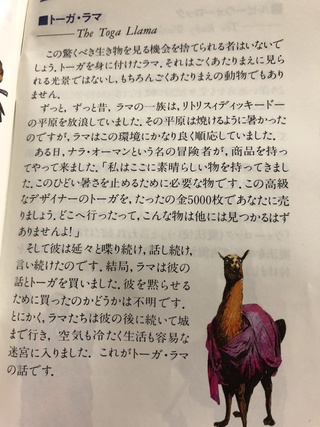 ■トーガ・ラマ
The Toga Llama
この驚くべき生き物を見る機会を捨てられる者はいないで
しょう。トーガを身に付けたラマ。それはごくあたりまえに見
られる光景ではないし、もちろんごくあたりまえの動物でもあり
ません。
ずっと、ずっと昔、ラマの一族は、リトリスィディッキードー
の平原を放浪していました。その平原は焼けるように暑かった
のですが、ラマはこの環境にかなり良く順応していました。
ある日、ナラ・オーマンという名の冒険者が、商品を持っ
てやって来ました。「私はここに素晴らしい物を持ってきまし
た。このひどい暑さを止めるために必要な物です。この高級
なデザイナーのトーガを、たったの金5000枚であなたに売
りましょう。どこへ行ったって、こんな物は他には見つかるはず
ありませんよ!」
そして彼は延々と喋り続け、話し続け、
言い続けたのです。結局、ラマは彼の
話とトーガを買いました。彼を黙らせる
ために買ったのかどうかは不明です。
とにかく、ラマたちは彼の後に続いて城
まで行き、空気も冷たく生活も容易な
迷宮に入りました。これがトーガ・ラマ
の話です。